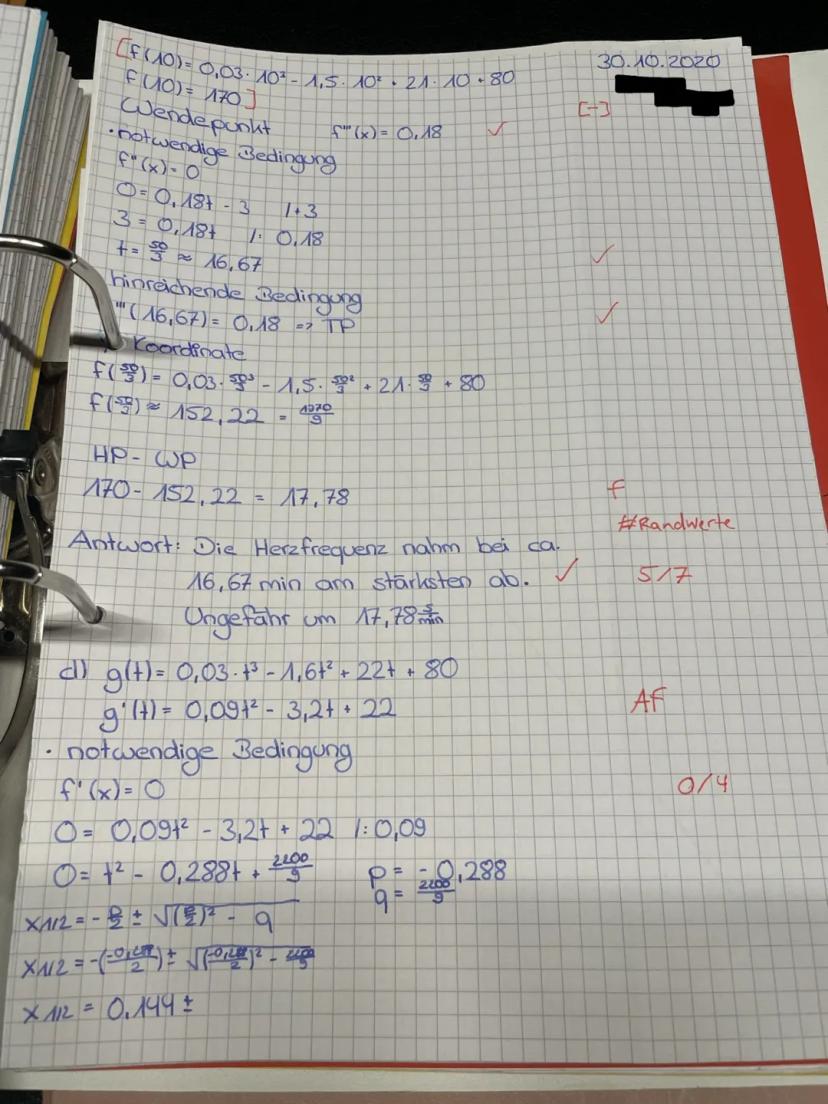 30.10.2020
[f(10) = 0,03 · 10³ - 1,5 · 10² + 21 · 10 + 80
f(10) = 170]
[-]
Wendepunkt f'''(x) = 0,18 ✓
· notwendige Bedingung
f''(x) = 0
0 = 0,18t - 3 | + 3
3 = 0,18t | : 0,18
t = 50/3 ≈ 16,67 ✓
hinreichende Bedingung
'''(16,67) = 0,18 => TP ✓
Koordinate
f(50/3) = 0,03 · 50/3³ - 1,5 · 50/3² + 21 · 50/3 + 80
f(50/3) ≈ 152,22 = 1370/9
HP - WP
170 - 152,22 = 17,78 f
#Randwerte
Antwort: Die Herzfrequenz nahm bei ca.
16,67 min am stärksten ab. ✓ 5/7
Ungefähr um 17,78 S/min
d) g(t) = 0,03 · t³ - 1,6t² + 22t + 80
g'(t) = 0,09t² - 3,2t + 22 AF
· notwendige Bedingung
f'(x) = 0 0/4
0 = 0,09t² - 3,2t + 22 | : 0,09
0 = t² - 0,288t + 2200/9 p = -0,288
q = 2200/9
x1/2 = -p/2 ± √(p/2)² - q
x1/2 = -(-0,288/2) ± √(-0,288/2)² - 2200/9
x1/2 = 0,144 ±